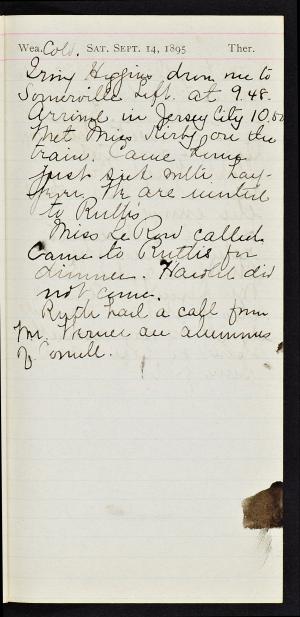 Wea. Cold. SAT. SEPT. 14, 1895 Ther.
Irving Higgins drove me to
Somerville Left. at 9.48.
Arrived in Jersey City 10.50
Met Miss Kirby on the
train. Came home
just sick with hay-
fever. We are invited
to Ruth's
Miss Le Row called.
Came to Ruth's for
dinner. Harold did
not come.
Ruth had a call from
Mr. Werner an alumnus
of Cornell.